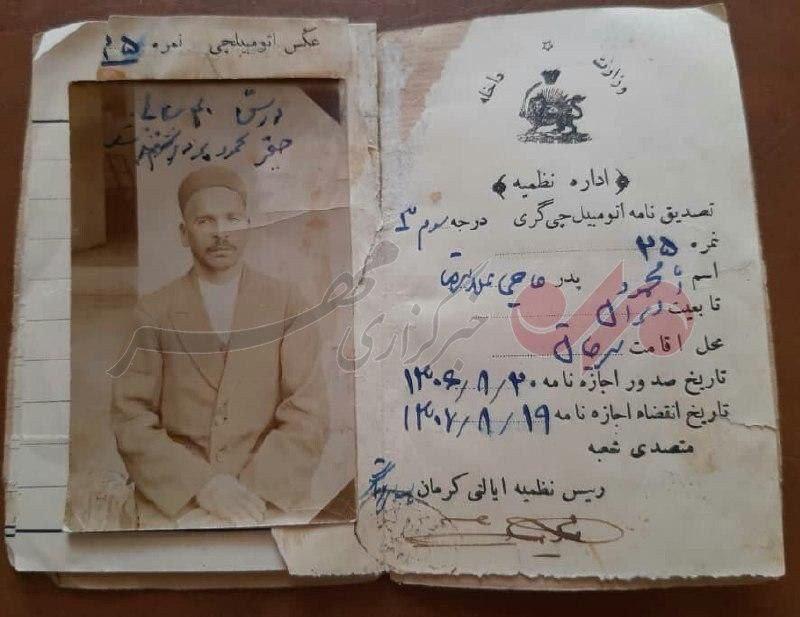 عکس اتومبیلچی نمره ۲۵
درسن ۴۰ سالی
محمود
وزارت داخله
اداره نظمیه
تصدیق نامه اتومبیل چی گری درجه سوم ۳
نمره ۲۵
اسم محمود پدر حاجی
تابعیت ایران
محل اقامت سیرجان
تاریخ صدور اجازه نامه ۱۳۰۶/۸/۲۰
تاریخ انقضاء اجازه نامه ۱۳۰۷/۸/۱۹
متصدی شعبه
رئیس نظمیه ایالتی کرمان
خبرگزاری مهر